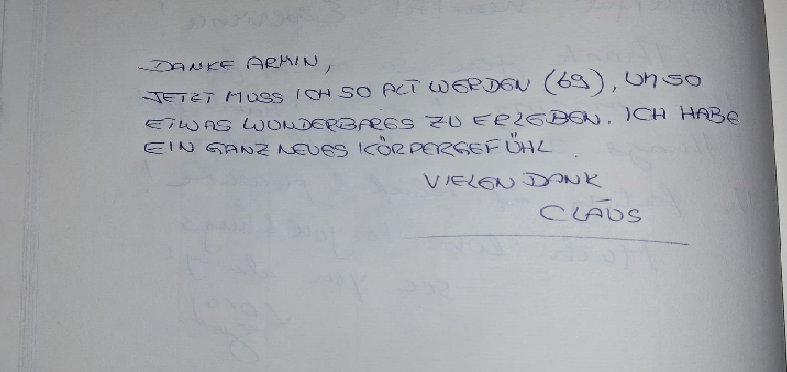 DANKE ARMIN,
JETZT MUSS ICH SO ALT WERDEN (69), UM SO
ETWAS WUNDERBARES ZU ERLEBEN. ICH HABE
EIN GANZ NEUES KÖRPERGEFÜHL.
VIELEN DANK
CLAUS